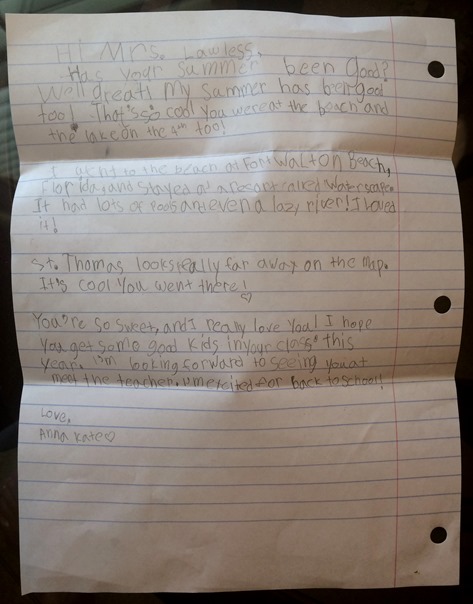 Hi Mrs. Lawless,
Has your summer been good?
Well great! My summer has been good
too! That's so cool you were at the beach and
the lake on the 4th too!
I went to the beach at Fort Walton Beach,
Florida, and stayed at a resort called Waterscape.
It had lots of pools and even a lazy river! I loved
it!
St. Thomas looks really far away on the map.
It's cool you went there! ♡
You're so sweet, and I really love you! I hope
you get some good kids in your class this
year. I'm looking forward to seeing you at
meet the teacher. I'm excited for back to school!
Love,
Anna Kate ♡